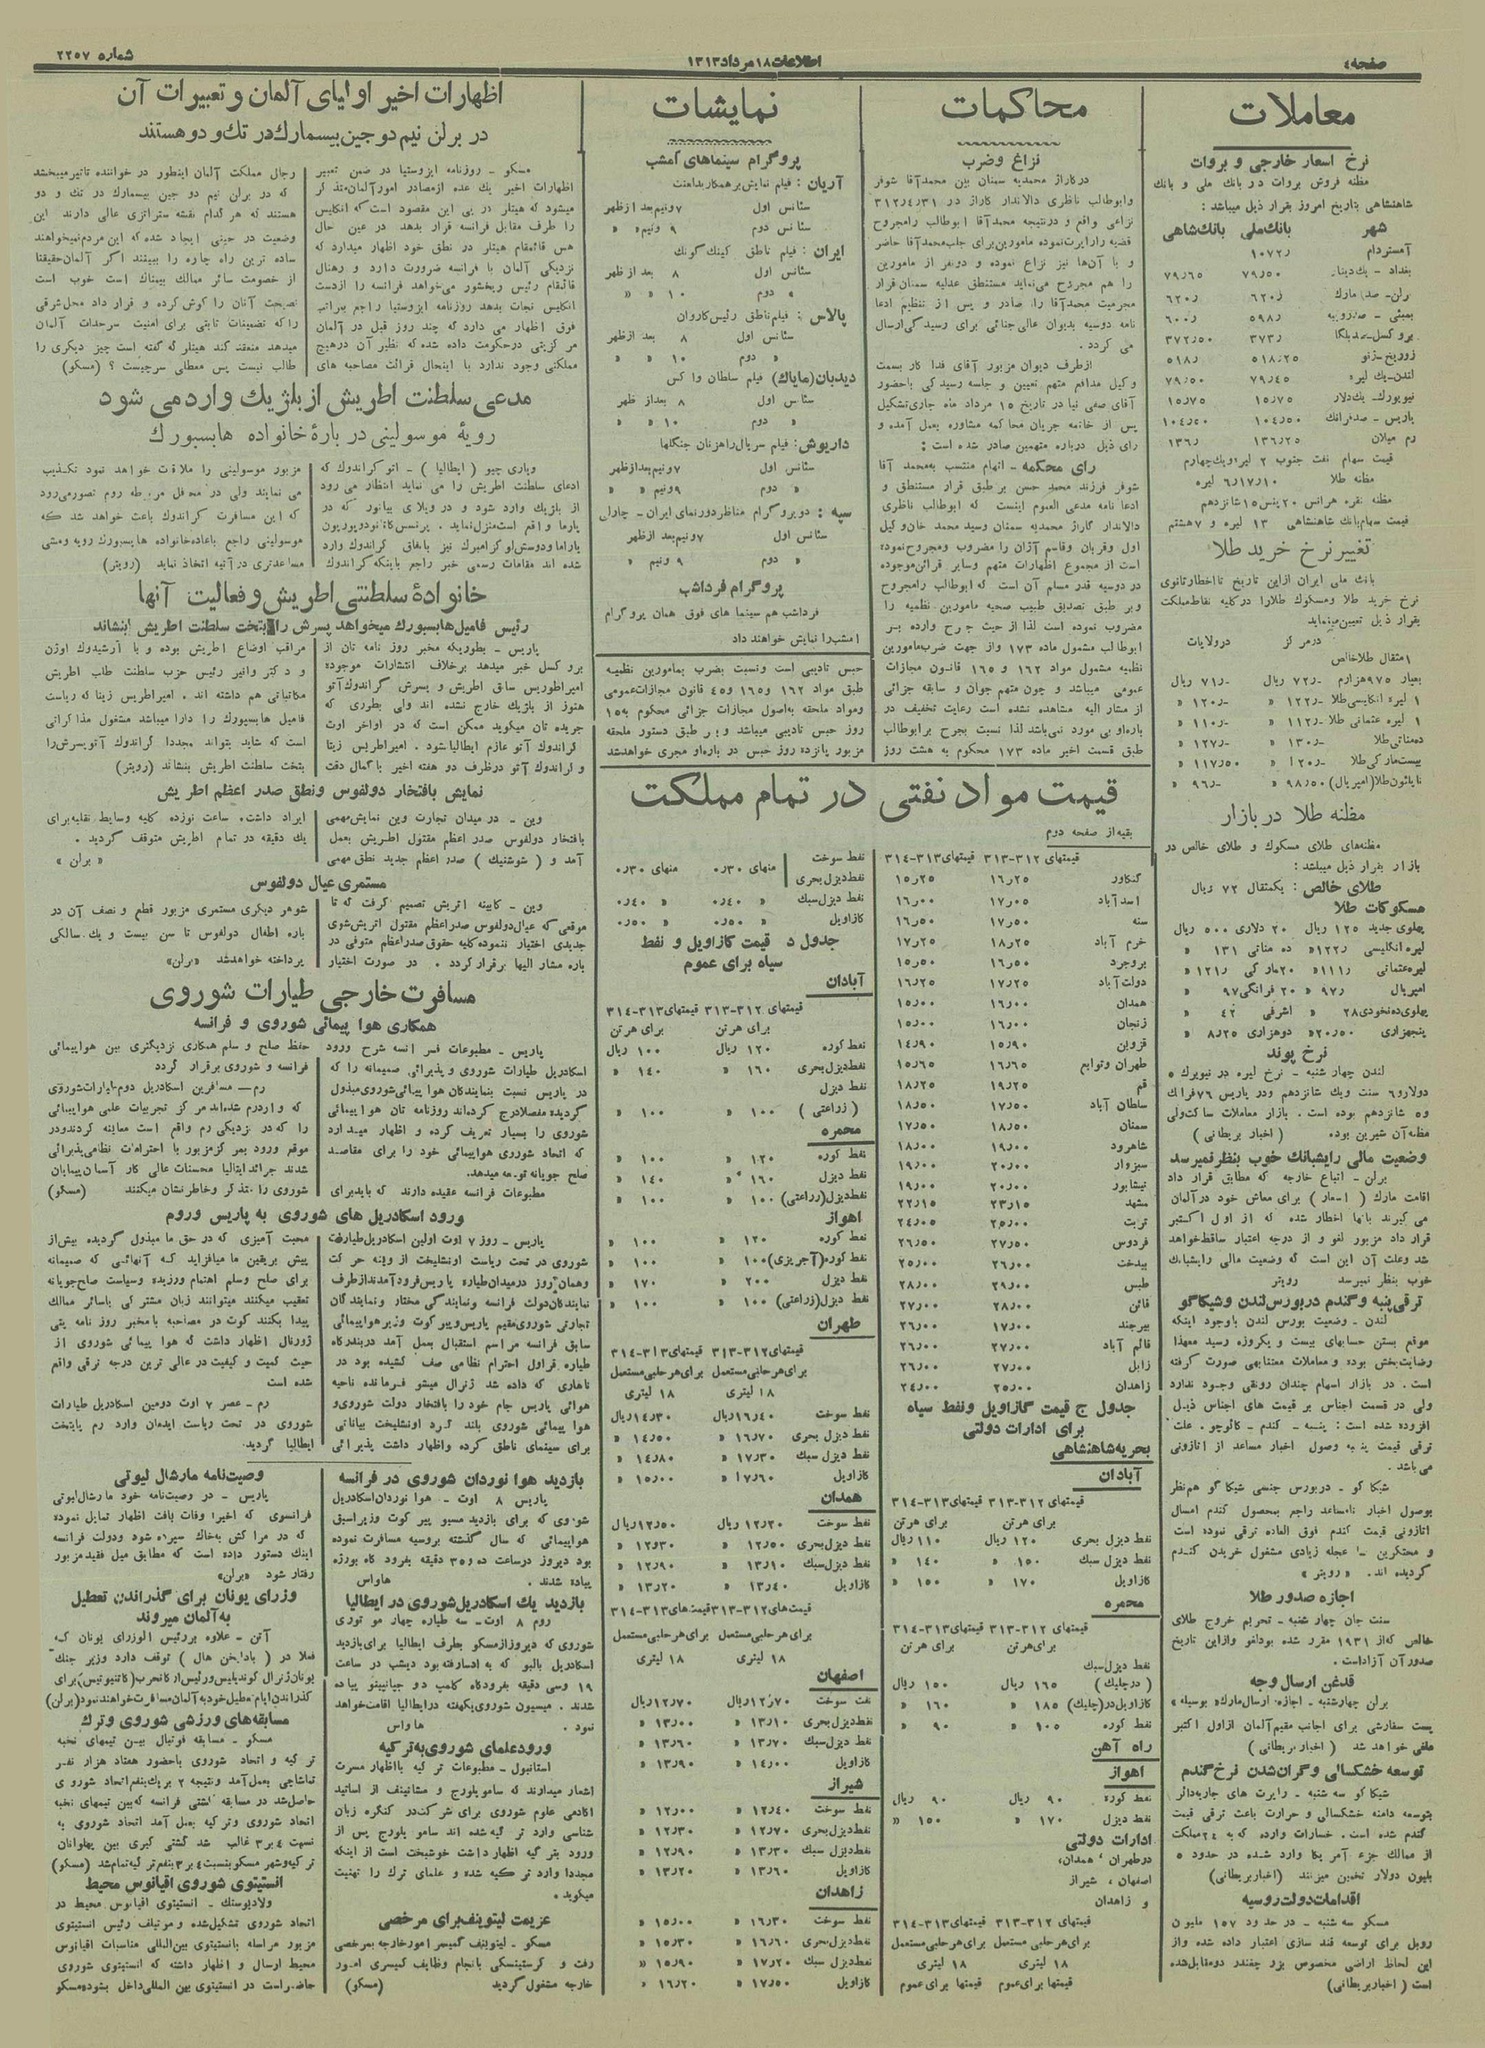 صفحه ٤
اطلاعات ۱۸ مرداد ۱۳۱۳
شماره ۲۲۵۷
معاملات
نرخ اسعار خارجی و بروات
مظنه فروش بروات در بانك ملی و بانك
شاهنشاهی بتاریخ امروز بقرار ذیل میباشد :
شهر بانك‌ملی بانك‌شاهی
آمستردام ۱۰۷۲ر
بغداد - یك‌دینار ۷۹ر۵۰ ۷۹ر۶۵
برلن - صد مارك ۶۲۰ر ۶۲۰ر
بمبئی - صدروپیه ۵۹۸ر ۶۰۰ر
بروکسل-صدبلگا ۳۷۳ر ۳۷۲ر۵۰
زوریخ-ژنو ۵۱۸ر۲۵ ۵۱۸ر
لندن-یك لیره ۷۹ر۴۵ ۷۹ر۵۰
نیویورك-یك‌دلار ۱۵ر۷۵ ۱۵ر۷۵
پاریس - صدفرانك ۱۰۴ر۵۰ ۱۰۴ر۵۰
رم میلان ۱۳۶ر۲۵ ۱۳۶ر
قیمت سهام نفت جنوب ۲ لیره‌ویك‌چهارم
مظنه طلا ۶ر۱۷ر۱۰ لیره
مظنه نقره هرانس ۲۰پنس ۱۵شانزدهم
قیمت سهام‌بانك شاهنشاهی ۱۳ لیره و ۷هشتم
تغییر نرخ خرید طلا
بانك ملی ایران ازاین تاریخ تااخطارثانوی
نرخ خرید طلا ومسکوك طلارا درکلیه نقاط‌مملکت
بقرار ذیل تعیین‌مینماید
درمرکز درولایات
۱مثقال طلاخالص
بعیار ۹۷۵هزارم -ر۷۲ ریال -ر۷۱ ریال
۱ لیره انگلیسی‌طلا -ر۱۲۲ « -ر۱۲۰ «
۱ لیره عثمانی طلا -ر۱۱۲ « -ر۱۱۰ «
ده‌مناتی‌طلا -ر۱۳۰ « -ر۱۲۷ «
بیست‌مارکی‌طلا -ر۱۲۰ « ۱۱۷ر۵۰ «
ناپلئون‌طلا(امپریال) ۹۸ر۵۰ « -ر۹۶ «
مظنه طلا در بازار
مظنه‌های طلای مسکوك و طلای خالص در
بازار بقرار ذیل میباشد :
طلای خالص : یکمثقال ۷۲ ریال
مسکوکات طلا
پهلوی جدید ۱۲۵ ریال ۲۰ دلاری ۵۰۰ ریال
لیره انگلیسی ۱۲۲ر« ده مناتی ۱۳۱ «
لیره‌عثمانی ۱۱۱ر« ۲۰مارکی ۱۲۱ر «
امپریال ۹۷ر « ۲۰ فرانکی ۹۷ «
پهلوی‌ده‌نخودی۲۸ « اشرفی ۴۲ «
پنجهزاری ۲۰ر۵۰« دوهزاری ۸ر۲۵ «
نرخ پوند
لندن چهار شنبه - نرخ لیره در نیویرك ٥
دولارو۶ سنت ویك شانزدهم ودر پاریس ۷۶فرانك
و۵ شانزدهم بوده است . بازار معاملات ساکت‌ولی
مظنه‌آن شیرین بوده ( اخبار بریطانی )
وضعیت مالی رایشبانك خوب بنظر نمیرسد
برلن - اتباع خارجه که مطابق قرار داد
اقامت مارك ( ا-مار ) برای معاش خود درآلمان
می گیرند بآنها اخطار شده که از اول اکتبر
قرار داد مزبور لغو و از درجه اعتبار ساقط‌خواهد
شد وعلت آن این است که وضعیت مالی رایشبانك
خوب بنظر نمیرسد رویتر
ترقی پنبه و گندم در بورس لندن و شیکاگو
لندن - وضعیت بورس لندن باوجود اینکه
موقع بستن حسابهای بیست و یکروزه رسید معهذا
رضایت‌بخش بوده و معاملات معتنابهی صورت گرفته
است . در بازار اسهام چندان رونقی وجود ندارد
ولی در قسمت اجناس بر قیمت های اجناس ذیل
افزوده شده است : پنبه - گندم - کائوچو . علت
ترقی قیمت پنبه وصول اخبار مساعد از اتازونی
می‌باشد .
شیکا گو - دربورس جنسی شیکا گو هم‌نظر
بوصول اخبار نامساعد راجع بمحصول گندم امسال
اتازونی قیمت گندم فوق العاده ترقی نموده است
و محتکرین با عجله زیادی مشغول خریدن گندم
گردیده اند . « رویتر »
اجازه صدور طلا
سنت جان چهار شنبه - تحریم خروج طلای
خالص که‌از ۱۹۳۱ مقرر شده بودلغو وازاین تاریخ
صدورآن آزاداست .
قدغن ارسال وجه
برلن چهارشنبه - اجازه ارسال‌مارك« بوسیله »
پست سفارشی برای اجانب مقیم‌آلمان ازاول اکتبر
ملغی خواهد شد ( اخبار بریطانی )
توسعه خشکسالی و گران‌شدن نرخ گندم
شیکا گو سه شنبه - راپرت های جاریه‌دائر
بتوسعه دامنه خشکسالی و حرارت باعث ترقی قیمت
گندم شده است . خسارات وارده که به ۲۴مملکت
از ممالك جزء آمریکا وارد شده در حدود ٥
بلیون دولار تخمین میزنند (اخباربریطانی)
اقدامات دولت روسیه
مسکو سه شنبه - در حدود ۱۵۷ ملیون
روبل برای توسعه قند سازی اعتبار داده شده واز
این لحاظ اراضی مخصوص بزر چغندر دومقابل‌شده
است ( اخباربریطانی)
محاکمات
نزاع وضرب
درگاراژ محمدیه سمنان بین محمدآقا شوفر
وابوطالب ناظری دالاندار گاراژ در ۳۱ر۴ر۳۱۲
نزاعی واقع و درنتیجه محمدآقا ابوطالب رامجروح
قضیه راراپرت‌نموده مامورین‌برای جلب‌محمدآقا حاضر
و با آن‌ها نیز نزاع نموده و دونفر از مامورین
را هم مجروح می‌نماید مستنطق عدلیه سمنان قرار
مجرمیت محمدآقارا صادر و پس از تنظیم ادعا
نامه دوسیه بدیوان عالی‌جنائی برای رسیدگی‌ارسال
می گردد .
ازطرف دیوان مزبور آقای فدا کار بسمت
وکیل مدافع متهم تعیین و جلسه رسیدگی باحضور
آقای صفی نیا در تاریخ ۱۵ مرداد ماه جاری‌تشکیل
پس از خاتمه جریان محاکمه مشاوره بعمل آمده و
رای ذیل درباره متهمین صادر شده است :
رای محکمه - اتهام منتسب به‌محمد آقا
شوفر فرزند محمد حسن بر طبق قرار مستنطق و
ادعا نامه مدعی العموم اینست که ابوطالب ناظری
دالاندار گاراژ محمدیه سمنان وسید محمد خان‌وکیل
اول وقربان وقاسم آژان را مضروب ومجروح‌نموده
است از مجموع اظهارات متهم وسایر قرائن‌موجوده
در دوسیه قدر مسلم آن است که ابوطالب رامجروح
وبر طبق تصدیق طبیب صحیه مامورین نظمیه را
مضروب نموده است لذا از حیث جرح وارده بر
ابوطالب مشمول ماده ۱۷۳ واز جهت ضرب‌مامورین
نظمیه مشمول مواد ۱۶۲ و ۱۶۵ قانون مجازات
عمومی میباشد و چون متهم جوان و سابقه جزائی
از مشار الیه مشاهده نشده است رعایت تخفیف در
باره‌او بی مورد نمی‌باشد لذا نسبت بجرح برابوطالب
طبق قسمت اخیر ماده ۱۷۳ محکوم به هشت روز
نمایشات
پروگرام سینماهای امشب
آریان : فیلم نمایش‌برهمکار بداهت
سئانس اول ۷ونیم‌بعد ازظهر
سئانس دوم ۹ ونیم« «
ایران : فیلم ناطق کینگ کونگ
سئانس اول ۸ بعد ازظهر
« دوم ۱۰ « «
پالاس : فیلم‌ناطق رئیس‌کاروان
سئانس اول ۸ بعد ازظهر
« دوم ۱۰ « «
دیدبان(مایاك) فیلم سلطان واکس
سئانس اول ۸ بعداز ظهر
« دوم ۱۰ « «
داریوش: فیلم سریال‌راهزنان جنگلها
سئانس اول ۷ونیم‌بعدازظهر
« دوم ۹ونیم « «
سپه : دوپروگرام مناظردورنمای ایران - چارلی
سئانس اول ۷ونیم‌بعد ازظهر
« دوم ۹ ونیم « «
پروگرام فرداشب
فرداشب هم سینما های فوق همان پروگرام
امشب‌را نمایش خواهند داد
حبس تادیبی است ونسبت بضرب بمامورین نظمیه
طبق مواد ۱۶۲ و۱۶۵ و۴۵ قانون مجازات‌عمومی
ومواد ملحقه به‌اصول مجازات جزائی محکوم به۱۵
روز حبس تادیبی میباشد وبر طبق دستور ملحقه
مزبور پانزده روز حبس در باره‌او مجری خواهدشد
قیمت مواد نفتی در تمام مملکت
بقیه‌از صفحه دوم
قیمتهای ۳۱۲-۳۱۳ قیمتهای۳۱۳-۳۱۴
کنگاور ۱۶ر۲۵ ۱۵ر۲۵
اسدآباد ۱۷ر۰۵ ۱۶ر۰۰
سنه ۱۷ر۵۰ ۱۶ر۵۰
خرم آباد ۱۸ر۲۵ ۱۷ر۲۵
بروجرد ۱۶ر۵۰ ۱۵ر۵۰
دولت‌آباد ۱۷ر۲۵ ۱۶ر۲۵
همدان ۱۶ر۰۰ ۱۵ر۰۰
زنجان ۱۶ر۰۰ ۱۵ر۰۰
قزوین ۱۵ر۹۰ ۱۴ر۹۰
طهران وتوابع ۱۶ر۶۵ ۱۵ر۶۵
قم ۱۹ر۲۵ ۱۸ر۲۵
سلطان آباد ۱۷ر۵۰ ۱۸ر۵۰
سمنان ۱۸ر۵۰ ۱۷ر۵۰
شاهرود ۱۹ر۰۰ ۱۸ر۰۰
سبزوار ۲۰ر۰۰ ۱۹ر۰۰
نیشابور ۲۰ر۰۰ ۱۹ر۰۰
مشهد ۲۳ر۱۵ ۲۲ر۱۵
تربت ۲۵ر۰۰ ۲۴ر۰۵
فردوس ۲۷ر۵۰ ۲۶ر۵۰
بیدخت ۲۶ر۰۰ ۲۵ر۰۰
طبس ۲۹ر۰۰ ۲۸ر۰۰
قائن ۲۸ر۰۰ ۲۷ر۰۰
بیرجند ۱۷ر۰۰ ۲۶ر۰۰
قائم آباد ۲۷ر۰۰ ۲۶ر۰۰
زابل ۲۷ر۰۰ ۲۶ر۰۰
زاهدان ۲۵ر۰۰ ۲۴ر۰۰
جدول ج قیمت گازاویل ونفط سیاه
برای ادارات دولتی
بحریه‌شاهنشاهی
آبادان
قیمتهای ۳۱۲-۳۱۳ قیمتهای۳۱۳-۳۱۴
برای هرتن برای هرتن
نفط دیزل بحری ۱۲۰ ریال ۱۱۰ ریال
نفط دیزل سبك ۱۵۰ « ۱۴۰ «
گازاویل ۱۷۰ « ۱۵۰ «
محمره
قیمتهای ۳۱۲-۳۱۳ قیمتهای۳۱۳-۳۱۴
برای‌هرتن برای هرتن
نفط دیزل‌سبك
( درچلیك ) ۱۶۵ ریال ۱۵۰ ریال
گازاویل‌در(چلیك) ۱۸۵ « ۱۶۰ «
نفط کوره ۱۰۵ « ۹۰ «
راه آهن
اهواز
نفط کوره ۹۰ ریال ۹۰ ریال
نفط دیزل ۱۷۰ « ۱۵۰ «
ادارات دولتی
درطهران ، همدان،
اصفهان ، شیراز
و زاهدان
قیمتهای ۳۱۲-۳۱۳ قیمتهای ۳۱۳-۳۱۴
برای‌هرحلبی مستعمل برای‌هرحلبی‌مستعمل
۱۸ لیتری ۱۸ لیتری
قیمتها برای‌عموم قیمتها برای‌عموم
نفط سوخت
نفط‌دیزل‌بحری منهای ۳۰ر۰ منهای ۳۰ر۰
نفط دیزل‌سبك « ۴۰ر۰ « ۴۰ر۰
گازاویل « ۵۰ر۰ « ۵۰ر۰
جدول د قیمت گازاویل و نفط
سیاه برای عموم
آبادان
قیمتهای ۳۱۲-۳۱۳ قیمتهای۳۱۳-۳۱۴
برای هرتن برای هرتن
نفط کوره ۱۲۰ ریال ۱۰۰ ریال
نفط‌دیزل‌بحری ۱۶۰ « ۱۴۰ «
نفط دیزل
( زراعتی ) ۱۰۰ « ۱۰۰ «
محمره
نفط کوره ۱۲۰ « ۱۰۰ «
نفط دیزل ۱۶۰ « ۱۴۰ «
نفط‌دیزل(زراعتی) ۱۰۰ « ۱۰۰ «
اهواز
نفط کوره ۱۲۰ « ۱۰۰ «
نفط کوره(آجرپزی)۱۰۰ « ۱۰۰ «
نفط دیزل ۲۰۰ « ۱۷۰ «
نفط دیزل(زراعتی) ۱۰۰ « ۱۰۰ «
طهران
قیمتهای ۳۱۲-۳۱۳ قیمتهای۳۱۳-۳۱۴
برای‌هرحلبی‌مستعمل برای هرحلبی‌مستعمل
۱۸ لیتری ۱۸ لیتری
نفط سوخت ۱۶ر۴۰ریال ۱۴ر۳۰ریال
نفط دیزل بحری ۱۶ر۷۰ « ۱۴ر۵۰ «
نفط دیزل سبك ۱۷ر۳۰ « ۱۴ر۸۰ «
گازاویل ۱۷ر۶۰ « ۱۵ر۰۰ «
همدان
نفط سوخت ۱۲ر۲۰ ریال ۱۲ر۵۰ریال
نفط دیزل‌بحری ۱۲ر۵۰ « ۱۲ر۳۰ «
نفط دیزل‌سبك ۱۳ر۱۰ « ۱۲ر۹۰ «
گازاویل ۱۳ر۴۰ « ۱۳ر۲۰ «
قیمت‌های۳۱۲-۳۱۳ قیمت‌های۳۱۳-۳۱۴
برای‌هرحلبی‌مستعمل برای‌هرحلبی‌مستعمل
۱۸ لیتری ۱۸ لیتری
اصفهان
نفت سوخت ۱۲ر۷۰ریال ۱۲ر۷۰ریال
نفط‌دیزل‌بحری ۱۳ر۱۰ « ۱۳ر۰۰ «
نفط‌دیزل‌سبك ۱۳ر۷۰ « ۱۳ر۶۰ «
گازاویل ۱۴ر۰۰ « ۱۳ر۹۰ «
شیراز
نفط سوخت ۱۲ر۴۰ « ۱۲ر۰۰ «
نفط دیزل‌بحری ۱۲ر۷۰ « ۱۲ر۳۰ «
نفط دیزل سبك ۱۳ر۳۰ « ۱۲ر۹۰ «
گازاویل ۱۳ر۶۰ « ۱۳ر۲۰ «
زاهدان
نفط سوخت ۱۶ر۳۰ « ۱۵ر۰۰ «
نفط دیزل‌بحری ۱۶ر۶۰ « ۱۵ر۳۰ «
نفط دیزل سبك ۱۷ر۲۰ « ۱۵ر۹۰ «
گازاویل ۱۷ر۵۰ « ۱۶ر۲۰ «
اظهارات اخیر اولیای آلمان و تعبیرات آن
در برلن نیم دوجین بیسمارك در تك و دو هستند
مسکو - روزنامه ایزوستیا در ضمن تعبیر
اظهارات اخیر یك عده ازمصادر امورآلمان‌متذکر
میشود که هیتلر در پی این مقصود است که انگلیس
را طرف مقابل فرانسه قرار بدهد در عین حال
هس قائمقام هیتلر در نطق خود اظهار میدارد که
نزدیکی آلمان با فرانسه ضرورت دارد و رهنال
قائمقام رئیس ریخشور می‌خواهد فرانسه را ازدست
انگلیس نجات بدهد روزنامه ایزوستیا راجع بمراتب
فوق اظهار می دارد که چند روز قبل در آلمان
مرکزیتی درحکومت داده شده که نظیر آن درهیچ
مملکتی وجود ندارد با اینحال قرائت مصاحبه های
رجال مملکت آلمان اینطور در خواننده تاثیرمیبخشد
که در برلن نیم دو جین بیسمارك در تك و دو
هستند که هرکدام نقشه ستراتژی عالی دارند این
وضعیت در حینی ایجاد شده که این مردم‌نمیخواهند
ساده ترین راه چاره را ببینند اگر آلمان‌حقیقتا
از خصومت سائر ممالك بیمناك است خوب است
نصیحت آنان را گوش کرده و قرار داد محل‌شرقی
راکه تضمینات ثابتی برای امنیت سرحدات آلمان
میدهد منعقد کند هیتلر که گفته است چیز دیگری را
طالب نیست پس معطلی سرچیست ؟ (مسکو)
مدعی سلطنت اطریش از بلژیك وارد می شود
رویه موسولینی در بارهٔ خانواده هابسبورك
ویاری چیو ( ایطالیا ) - اتو گراندوك که
ادعای سلطنت اطریش را می نماید انتظار می رود
از بلژیك وارد شود و در ویلای بیانور که در
یارما واقع است‌منزل‌نماید . پرنسس‌کانودوبوربون
پاراما ودوس‌لوگزامبرك نیز باتفاق گراندوك وارد
شده اند مقامات رسمی خبر راجع باینکه گراندوك
مزبور موسولینی را ملاقات خواهد نمود تکذیب
می نمایند ولی در محافل مربوطه روم تصورمی‌رود
که این مسافرت گراندوك باعث خواهد شد که
موسولینی راجع باعاده‌خانواده هابسبورك رویه ومشی
مساعدتری درآتیه اتخاذ نماید (رویتر)
خانوادهٔ سلطنتی اطریش و فعالیت آنها
رئیس فامیل هابسبورك میخواهد پسرش را بتخت سلطنت اطریش بنشاند
پاریس - بطوریکه مخبر روز نامه تان از
بروکسل خبر میدهد برخلاف انتشارات موجوده
امپراطوریس سابق اطریش و پسرش گراندوك‌آتو
هنوز از بلژیك خارج نشده اند ولی بطوری که
جریده تان میگوید ممکن است که در اواخر اوت
گراندوك آتو عازم ایطالیاشود . امپراطریس زیتا
و گراندوك آتو درظرف دو هفته اخیر باکمال دقت
مراقب اوضاع اطریش بوده و با آرشیدوك اوژن
و دکتر وانیر رئیس حزب سلطنت طلب اطریش
مکاتباتی هم داشته اند . امپراطریس زیتا که ریاست
فامیل هابسبورك را دارا میباشد مشغول مذاکراتی
است که شاید بتواند مجددا گراندوك آتوپسرش‌را
بتخت سلطنت اطریش بنشاند (رویتر)
نمایش بافتخار دولفوس ونطق صدر اعظم اطریش
وین - در میدان تجارت وین نمایش‌مهمی
بافتخار دولفوس صدر اعظم مقتول اطریش بعمل
آمد و ( شوشنیك ) صدر اعظم جدید نطق مهمی
ایراد داشت . ساعت نوزده کلیه وسایط نقلیه‌برای
یك دقیقه در تمام اطریش متوقف گردید .
« برلن »
مستمری عیال دولفوس
وین - کابینه اتریش تصمیم گرفت که تا
موقعی که عیال‌دولفوس صدراعظم مقتول اتریش‌شوی
جدیدی اختیار ننموده کلیه حقوق صدراعظم متوفی در
باره مشار الیها برقرار گردد . در صورت اختیار
شوهر دیگری مستمری مزبور قطع و نصف آن در
باره اطفال دولفوس تا سن بیست و یك سالگی
پرداخته خواهدشد «برلن»
مسافرت خارجی طیارات شوروی
همکاری هوا پیمائی شوروی و فرانسه
پاریس - مطبوعات فرانسه شرح ورود
اسکادریل طیارات شوروی و پذیرائی صمیمانه را که
در پاریس نسبت بنمایندگان هوا پیمائی‌شوروی‌مبذول
گردیده‌مفصلادرج کرده‌اند روزنامه تان هوا پیمائی
شوروی را بسیار تعریف کرده و اظهار میدارد
که اتحاد شوروی هواپیمائی خود را برای مقاصد
صلح جویانه توسعه میدهد.
مطبوعات فرانسه عقیده دارند که بایدبرای
حفظ صلح و سلم همکاری نزدیکتری بین هواپیمائی
فرانسه و شوروی برقرار گردد
رم - مسافرین اسکادریل دوم‌طیارات‌شوروی
که واردرم شده‌اند‌مرکز تجربیات علمی هواپیمائی
را که‌در نزدیکی رم واقع است معاینه کردندودر
موقع ورود بمرکزمزبور با احترامات نظامی‌پذیرائی
شدند جرائدایتالیا محسنات عالی کار آسمان‌پیمایان
شوروی را متذکر وخاطرنشان میکنند (مسکو)
ورود اسکادریل های شوروی به پاریس وروم
پاریس - روز ۷ اوت اولین اسکادریل‌طیارت
شوروی در تحت ریاست اونشلیخت از وینه حرکت
وهمان‌روز درمیدان‌طیاره پاریس‌فرودآمدندازطرف
نمایندگان‌دولت فرانسه ونمایندگی مختار ونمایندگان
تجارتی شوروی‌مقیم پاریس‌وپیرکوت وزیرهواپیمائی
سابق فرانسه مراسم استقبال بعمل آمد دربندرگاه
طیاره قراول احترام نظامی صف کشیده بود در
ناهاری که داده شد ژنرال میشو فرمانده ناحیه
هوائی پاریس جام خود را بافتخار دولت شوروی‌و
هوا پیمائی شوروی بلند کرد اونشلیخت بیاناتی
برای سینمای ناطق کرده واظهار داشت پذیرائی
محبت آمیزی که در حق ما مبذول گردیده بیش‌از
پیش بریقین ما میافزاید که آنهائی که صمیمانه
برای صلح وسلم اهتمام ورزیده وسیاست صلح‌جویانه
تعقیب میکنند میتوانند زبان مشترکی باسائر ممالك
پیدا بکنند کوت در مصاحبه بامخبر روز نامه پتی
ژورنال اظهار داشت که هوا پیمائی شوروی از
حیث کمیت و کیفیت در عالی ترین درجه ترقی واقع
شده است
رم - عصر ۷ اوت دومین اسکادریل طیارات
شوروی در تحت ریاست ایدمان وارد رم پایتخت
ایطالیا گردید.
بازدید هوا نوردان شوروی در فرانسه
پاریس ۸ اوت - هوا نوردان‌اسکادریل
شوروی که برای بازدید مسیو پیر کوت وزیراسبق
هواپیمائی که سال گذشته بروسیه مسافرت نموده
بود دیروز درساعت ده و۳۵ دقیقه بفرودگاه بورژه
پیاده شدند . هاواس
بازدید یك اسکادریل‌شوروی در ایطالیا
روم ۸ اوت - سه طیاره چهار مو توری
شوروی که دیروزازمسکو بطرف ایطالیا برای‌بازدید
اسکادریل بالبو که به ادسارفته بود دیشب در ساعت
۱۹ وسی دقیقه بفرودگاه کامپ دو جیانپینو پیاده
شدند . میسیون شوروی‌یکهفته درایطالیا اقامت‌خواهد
نمود . هاواس
ورودعلمای شوروی‌به‌ترکیه
استانبول - مطبوعات ترکیه بااظهار مسرت
اشعار میدارند که سامویلوریچ و مشانینف از اساتید
اکادمی علوم شوروی برای شرکت‌در کنگره زبان
شناسی وارد ترکیه شده اند سامو یلوریچ پس از
ورود بترکیه اظهارداشت خوشبخت است ازاینکه
مجددا وارد ترکیه شده و علمای ترك را تهنیت
میگوید .
عزیمت لیتوینف‌برای مرخصی
مسکو - لیتوینف کمیسر امورخارجه بمرخصی
رفت و کرستینسکی بانجام وظایف کمیسری امور
خارجه مشغول گردید (مسکو)
وصیت‌نامه مارشال لیوتی
پاریس - در وصیت‌نامه خود مارشال‌لیوتی
فرانسوی که اخیرا وفات یافت اظهار تمایل نموده
که در مراکش به‌خاك سپرده شود ودولت فرانسه
اینك دستور داده است که مطابق میل فقیدمزبور
رفتار شود «برلن»
وزرای یونان برای گذراندن تعطیل
به‌آلمان میروند
آتن - علاوه بررئیس الوزرای یونان که
فعلا در ( بادایخن هال ) توقف دارد وزیر جنگ
یونان‌ژنرال کوندیلیس‌ورئیس‌ارکانحرب(کاتنیوتیس)برای
گذراندن‌ایام‌تعطیل‌خودبه‌آلمان‌مسافرت‌خواهندنمود(برلن)
مسابقه‌های ورزشی شوروی وترك
مسکو - مسابقه فوتبال بین تیمهای نخبه
ترکیه و اتحاد شوروی باحضور هفتاد هزار نفر
تماشاچی بعمل‌آمد ونتیجه ۲ بریك‌بنفع‌اتحاد شوروی
حاصل‌شد در مسابقه کشتی فرانسه که‌بین تیمهای نخبه
اتحاد شوروی وترکیه بعمل آمد اتحاد شوروی به
نسبت ٤ بر۳ غالب شد کشتی گیری بین پهلوانان
ترکیه‌وشهر مسکوبنسبت٤ بر ۳ بنفع‌ترکیه‌تمام‌شد(مسکو)
انستیتوی شوروی اقیانوس محیط
ولادیوستك - انستیتوی اقیانوس محیط در
اتحاد شوروی تشکیل‌شده و موتیلف رئیس انستیتوی
مزبور مراسله بانستیتوی بین‌المللی مناسبات اقیانوس
محیط ارسال و اظهار داشته که انستیتوی شوروی
حاضر‌است در انستیتوی بین المللی‌داخل بشودمسکو